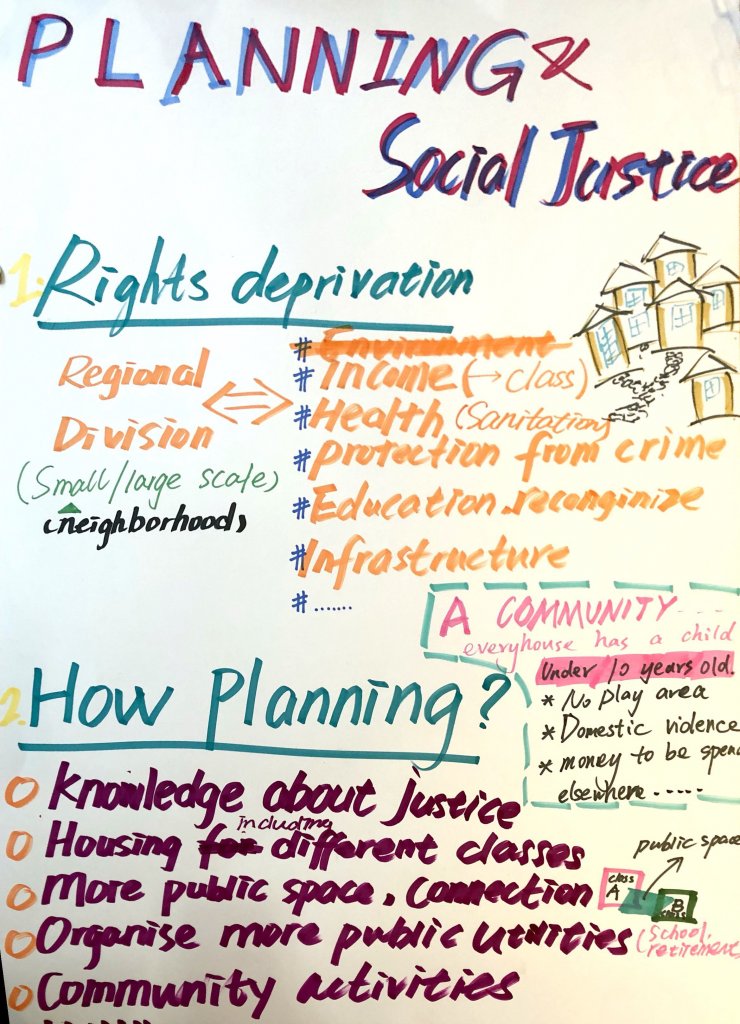 PLANNING &
Social Justice
1. Rights deprivation
Regional
Division
(Small/large scale)
(neighborhood)
# Environment
# Income (→ class)
# Health (Sanitation)
# protection from crime
# Education. reconginize
# Infrastructure
# .......
A COMMUNITY....
everyhouse has a child
Under 10 years old.
* No play area
* Domestic violence
* money to be spend
elsewhere.....
2. How Planning?
O Knowledge about justice
O Housing for including different classes
O More public space, connection
O Organise more public utilities
O Community activities
public space
class
A
B
class
(School,
retirement)